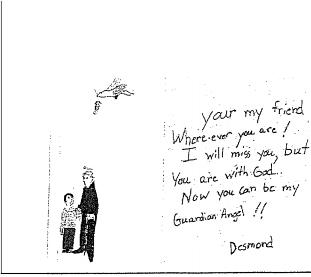 your my friend
Where-ever you are!
I will miss you, but
You are with God..
Now you can be my
Guardian Angel !!
Desmond